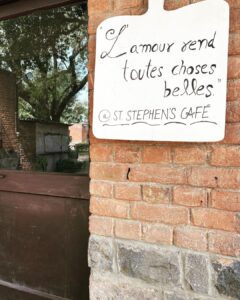 "L'amour rend
toutes choses
belles"
@ ST. STEPHEN'S CAFÉ